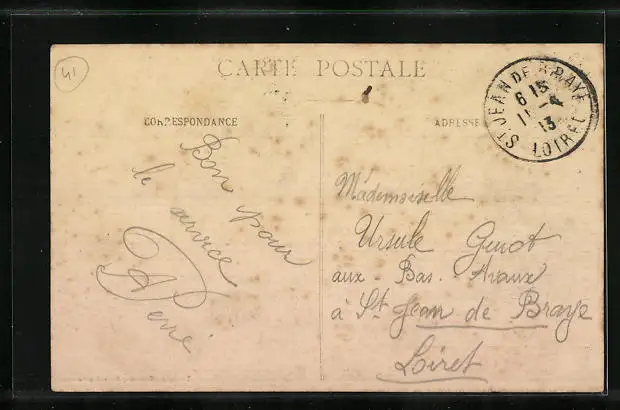 41
CARTE POSTALE
CORRESPONDANCE
ADRESSE
ST JEAN DE BRAYE
6 15
11 - 4
13
LOIRET
Bon pour
le service
Mademoiselle
Ursule Genot
aux - Bas - Avaux
à St Jean de Braye
Loiret